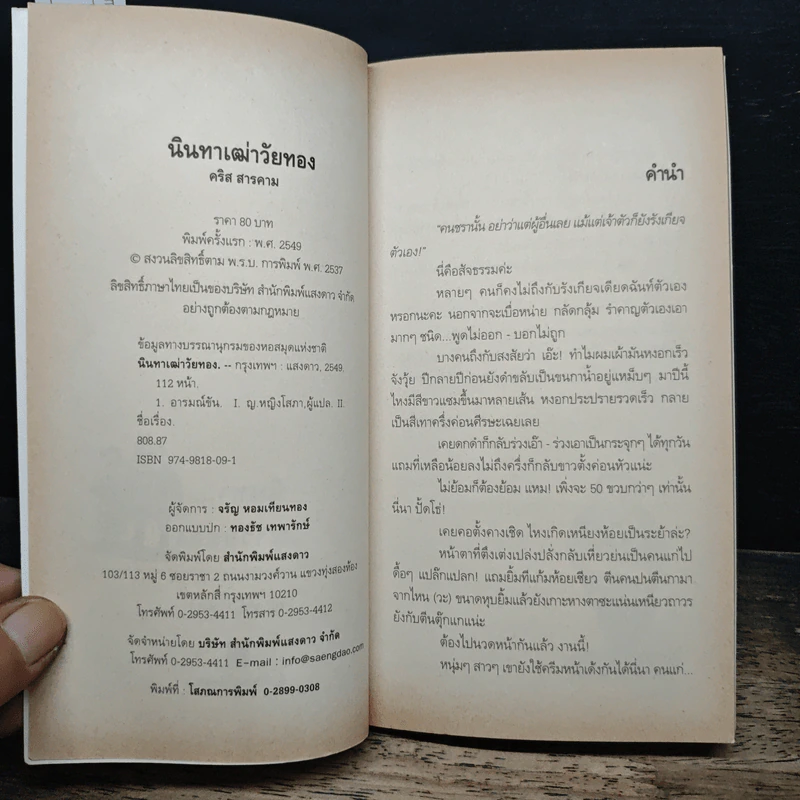 นินทาเฒ่าวัยทอง
คริส สารคาม
ราคา 80 บาท
พิมพ์ครั้งแรก : พ.ศ. 2549
© สงวนลิขสิทธิ์ตาม พ.ร.บ. การพิมพ์ พ.ศ. 2537
ลิขสิทธิ์ภาษาไทยเป็นของบริษัท สำนักพิมพ์แสงดาว จำกัด
อย่างถูกต้องตามกฎหมาย
ข้อมูลทางบรรณานุกรมของหอสมุดแห่งชาติ
นินทาเฒ่าวัยทอง. -- กรุงเทพฯ : แสงดาว, 2549.
112 หน้า.
1. อารมณ์ขัน. I. ญ.หญิงโสภา,ผู้แปล. II.
ชื่อเรื่อง.
808.87
ISBN 974-9818-09-1
ผู้จัดการ : จรัญ หอมเทียนทอง
ออกแบบปก : ทองธัช เทพารักษ์
จัดพิมพ์โดย สำนักพิมพ์แสงดาว
103/113 หมู่ 6 ซอยราชา 2 ถนนงามวงศ์วาน แขวงทุ่งสองห้อง
เขตหลักสี่ กรุงเทพฯ 10210
โทรศัพท์ 0-2953-4411 โทรสาร 0-2953-4412
จัดจำหน่ายโดย บริษัท สำนักพิมพ์แสงดาว จำกัด
โทรศัพท์ 0-2953-4411 E-mail : info@saengdao.com
พิมพ์ที่ : โสภณการพิมพ์ 0-2899-0308
คำนำ
"คนชรานั้น อย่าว่าแต่ผู้อื่นเลย แม้แต่เจ้าตัวก็ยังรังเกียจ
ตัวเอง!"
นี่คือสัจธรรมค่ะ
หลายๆ คนก็คงไม่ถึงกับรังเกียจเดียดฉันท์ตัวเอง
หรอกนะคะ นอกจากจะเบื่อหน่าย กลัดกลุ้ม รำคาญตัวเองเอา
มากๆ ชนิด...พูดไม่ออก - บอกไม่ถูก
บางคนถึงกับสงสัยว่า เอ๊ะ! ทำไมผมเผ้ามันหงอกเร็ว
จังวุ้ย ปีกลายปีก่อนยังดำขลับเป็นขนกาน้ำอยู่แหม็บๆ มาปีนี้
ไหงมีสีขาวแซมขึ้นมาหลายเส้น หงอกประปรายรวดเร็ว กลาย
เป็นสีเทาครึ่งค่อนศีรษะเฉยเลย
เคยดกดำก็กลับร่วงเอ๊า - ร่วงเอาเป็นกระจุกๆ ได้ทุกวัน
แถมที่เหลือน้อยลงไม่ถึงครึ่งก็กลับขาวตั้งค่อนหัวแน่ะ
ไม่ย้อมก็ต้องย้อม แหม! เพิ่งจะ 50 ขวบกว่าๆ เท่านั้น
นี่นา ปั้ดโธ่!
เคยคอตั้งคางเชิด ไหงเกิดเหนียงห้อยเป็นระย้าล่ะ?
หน้าตาที่ตึงเต่งเปล่งปลั่งกลับเหี่ยวย่นเป็นคนแก่ไป
ดื้อๆ แปล๊กแปลก! แถมยิ้มทีแก้มห้อยเชียว ตีนคนปนตีนกามา
จากไหน (วะ) ขนาดหุบยิ้มแล้วยังเกาะหางตาซะแน่นเหนียวถาวร
ยังกับตีนตุ๊กแกแน่ะ
ต้องไปนวดหน้ากันแล้ว งานนี้!
หนุ่มๆ สาวๆ เขายังใช้ครีมหน้าเด้งกันได้นี่นา คนแก่...